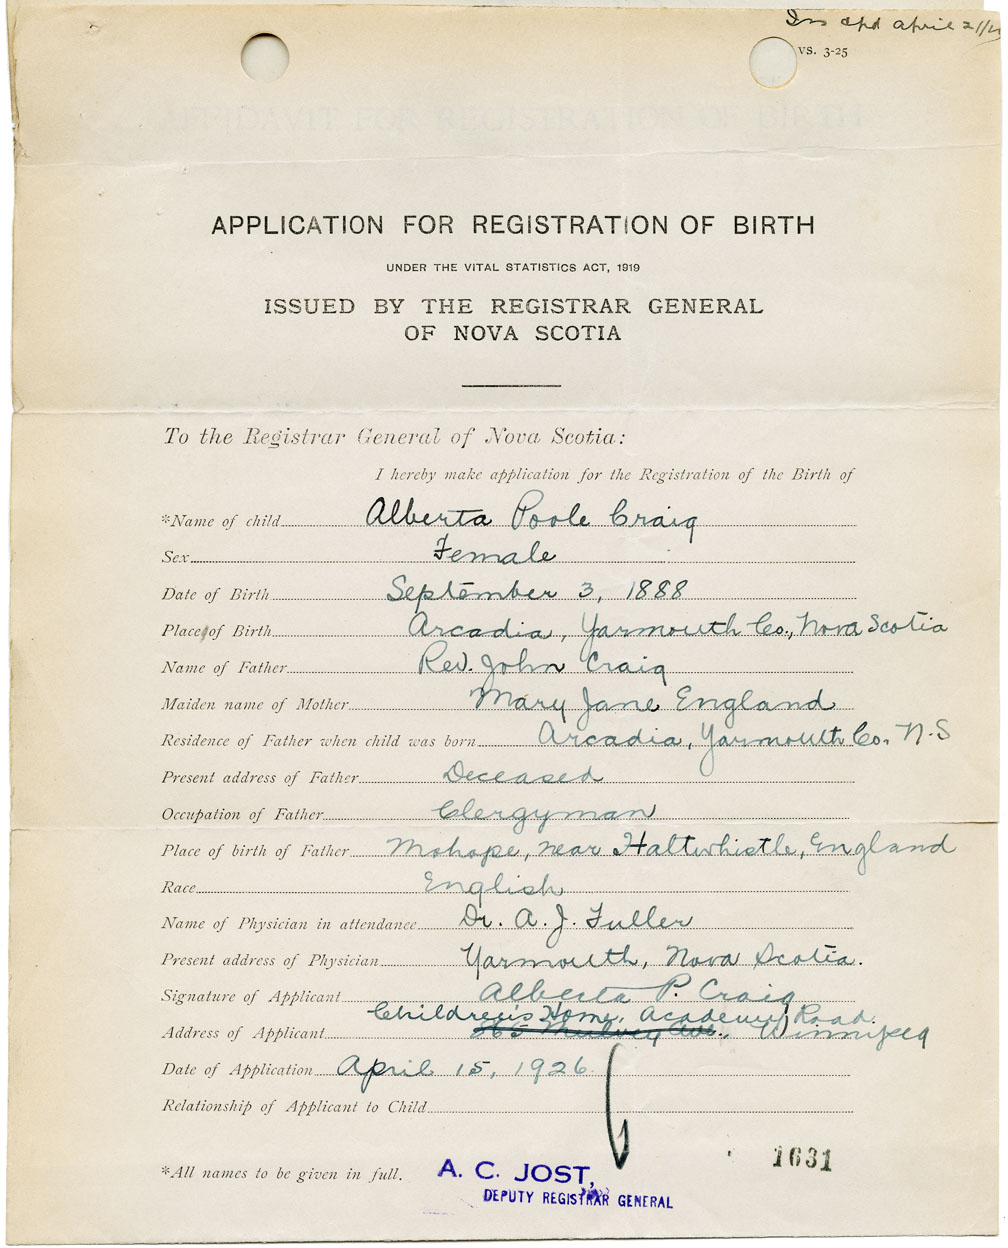 Ins apd april 21/26
VS. 3-25
AFFIDAVIT FOR REGISTRATION OF BIRTH
APPLICATION FOR REGISTRATION OF BIRTH
UNDER THE VITAL STATISTICS ACT, 1919
ISSUED BY THE REGISTRAR GENERAL
OF NOVA SCOTIA
To the Registrar General of Nova Scotia:
I hereby make application for the Registration of the Birth of
*Name of child Alberta Poole Craig
Sex Female
Date of Birth September 3, 1888
Place of Birth Arcadia, Yarmouth Co., Nova Scotia
Name of Father Rev. John Craig
Maiden name of Mother Mary Jane England
Residence of Father when child was born Arcadia, Yarmouth Co. N.S
Present address of Father Deceased
Occupation of Father Clergyman
Place of birth of Father Mohope, near Haltwhistle, England
Race English
Name of Physician in attendance Dr. A. J. Fuller
Present address of Physician Yarmouth, Nova Scotia.
Signature of Applicant Alberta P. Craig
Children's Home, Academy Road.
Address of Applicant 265 Mulvey Ave., Winnipeg
Date of Application April 15, 1926
Relationship of Applicant to Child
*All names to be given in full.
1631
A. C. JOST,
DEPUTY REGISTRAR GENERAL